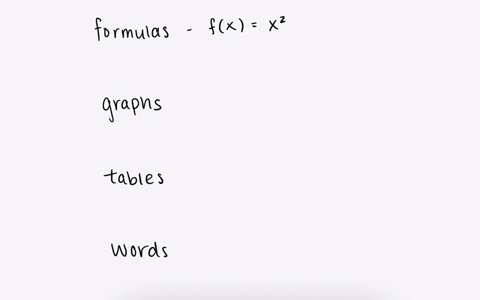 formulas - f(x) = x²
graphs
tables
words